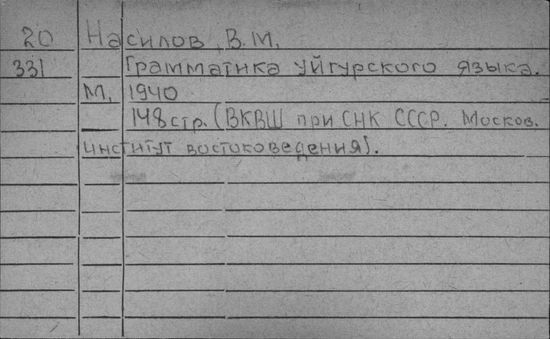 20 Насилов, В.М.
331 Грамматика уйгурского языка.
М, 1940
148 стр. (ВКВШ при СНК СССР. Москов.
институт востоковедения).